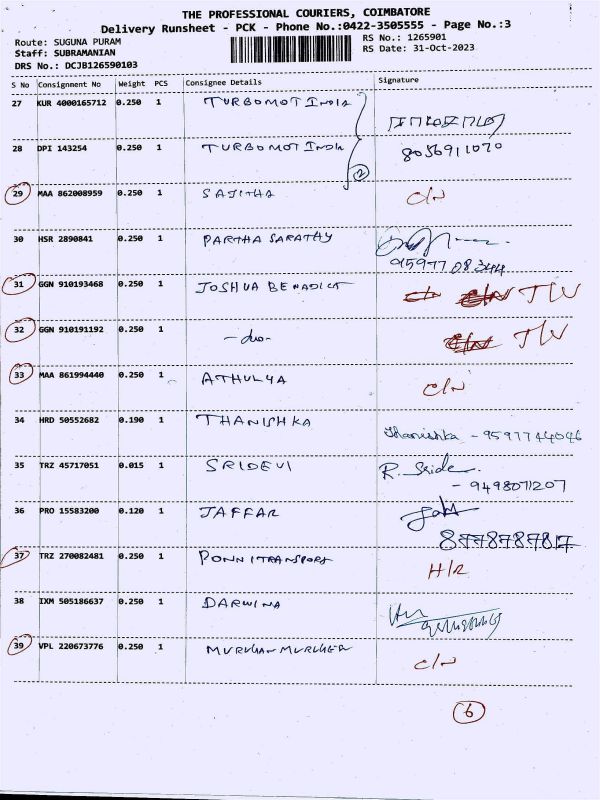 THE PROFESSIONAL COURIERS, COIMBATORE
Delivery Runsheet - PCK - Phone No.:0422-3505555 - Page No.:3
Route: SUGUNA PURAM RS No.: 1265901
Staff: SUBRAMANIAN RS Date: 31-Oct-2023
DRS No.: DCJB126590103
S No Consignment No Weight PCS Consignee Details Signature
27 KUR 4000165712 0.250 1 TURBOMOT INDIA
28 DPI 143254 0.250 1 TURBOMOT INDIA 8056911070
2
29 MAA 862008959 0.250 1 SAJITHA C/N
30 HSR 2890841 0.250 1 PARTHA SARATHY
9597708344
31 GGN 910193468 0.250 1 JOSHUA BENADICT C/N T/V
32 GGN 910191192 0.250 1 -do- C/N T/V
33 MAA 861994440 0.250 1 ATHULYA C/N
34 HRD 50552682 0.190 1 THANISHKA Thanishka - 9597744046
35 TRZ 45717051 0.015 1 SRIDEVI R. Sride
- 9498071207
36 PRO 15583200 0.120 1 JAFFAR
8778787817
37 TRZ 270082481 0.250 1 PONNI TRANSPORT H/R
38 IXM 505186637 0.250 1 DARWINA
39 VPL 220673776 0.250 1 MURUGAN MURUGER C/N
6